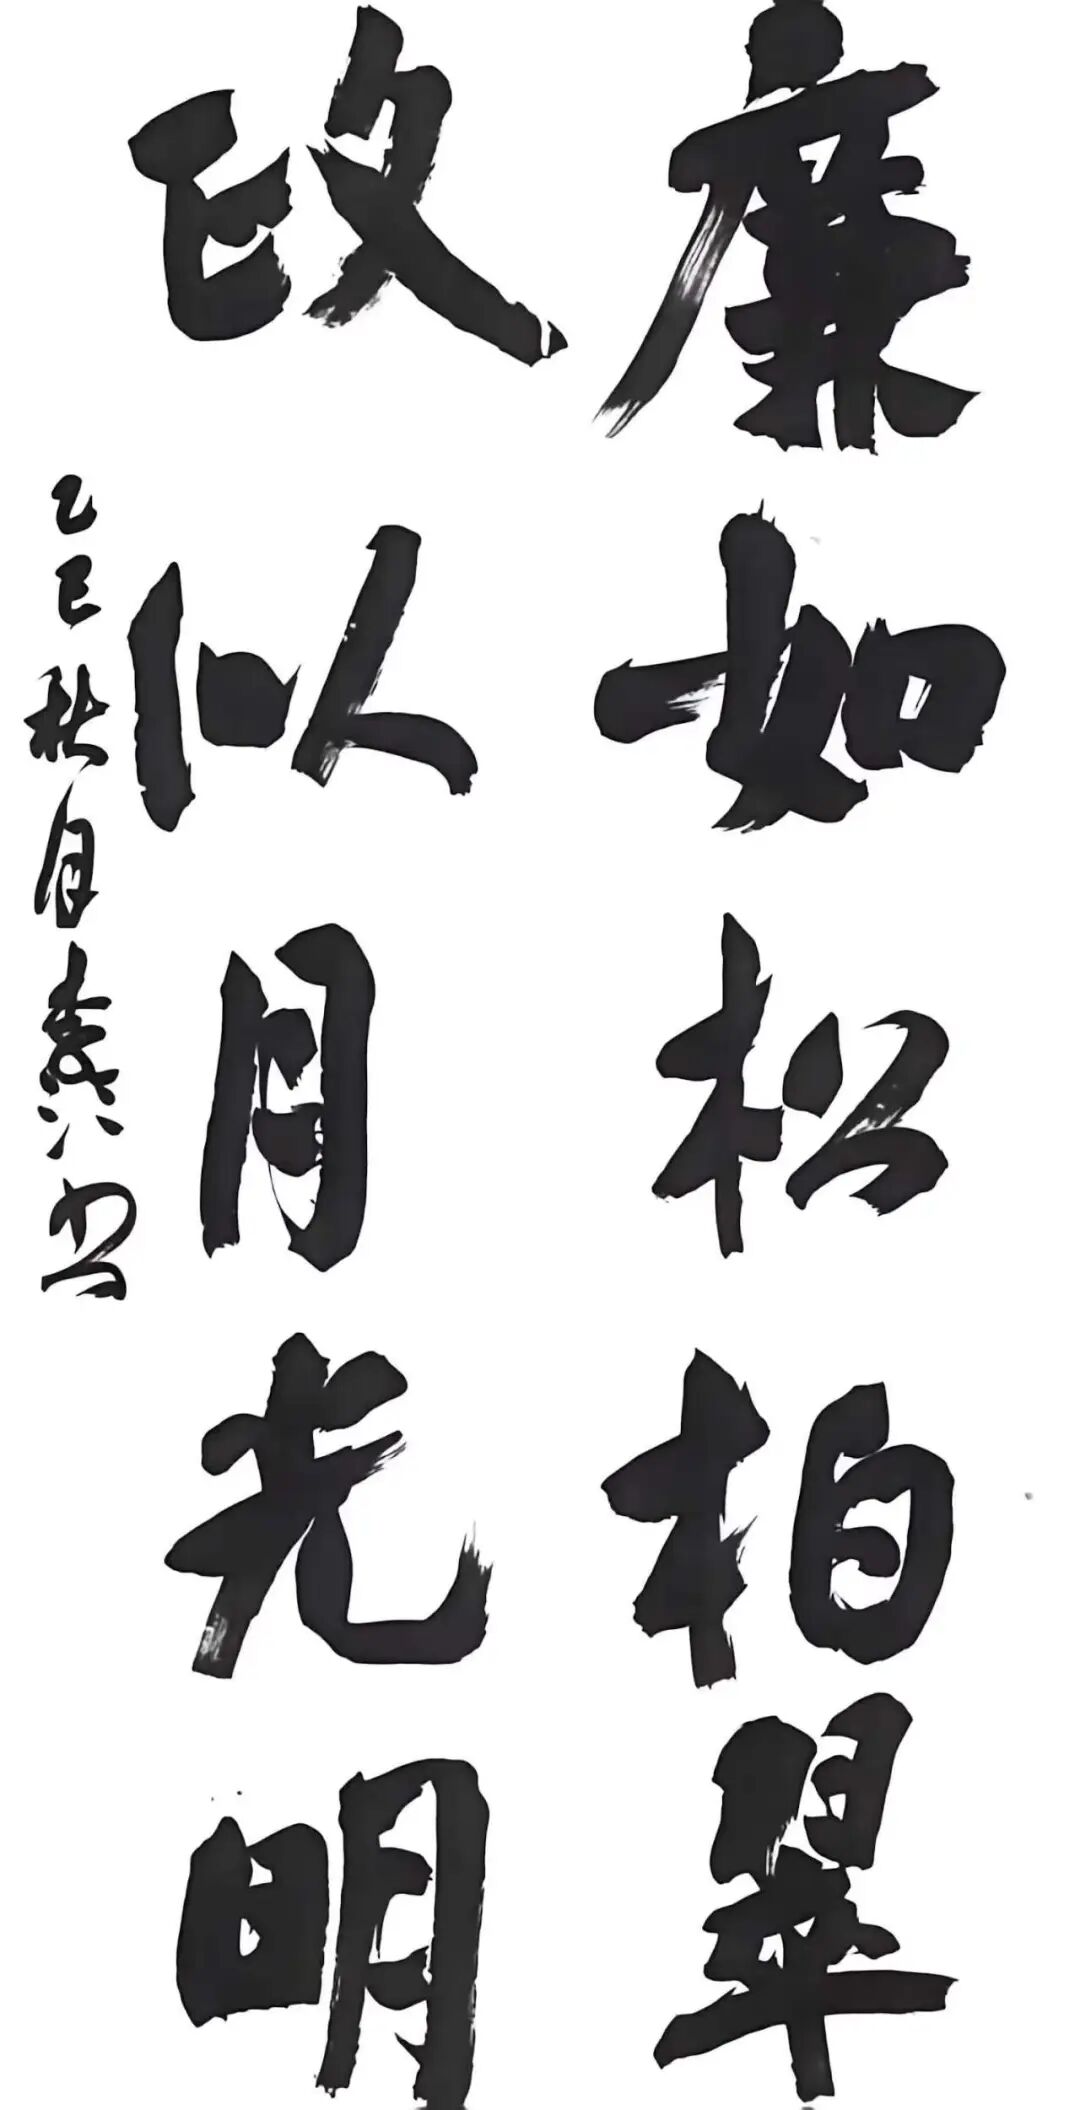 廉如松柏翠
政以月光明
乙巳秋月
书